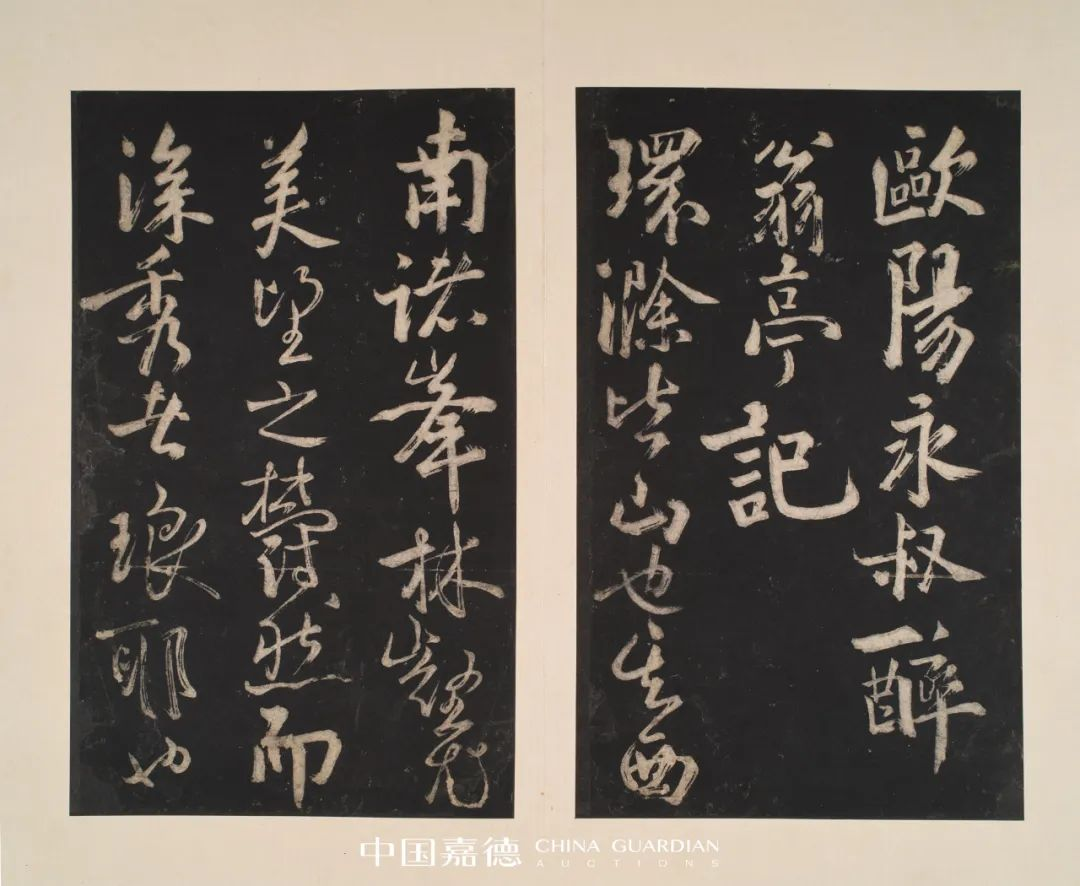 歐陽永叔醉
翁亭記
環滁皆山也其西
南諸峯林壑尤
美望之然而
深秀者琅耶也
中国嘉德 CHINA GUARDIAN
AUCTIONS